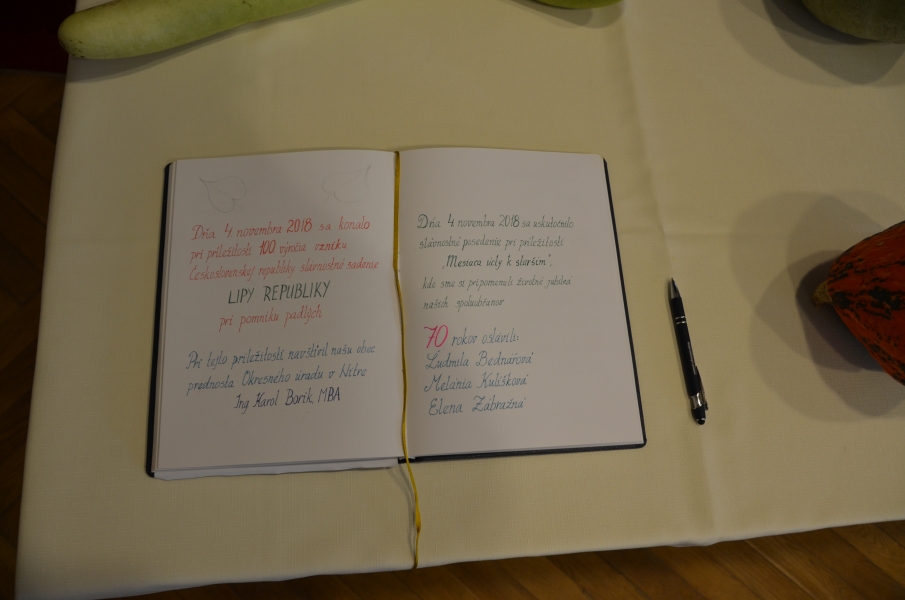 Dňa 4 novembra 2018 sa konalo
pri príležitosti 100 výročia vzniku
Československej republiky slávnostné sadenie
LIPY REPUBLIKY
pri pomníku padlých.
Pri tejto príležitosti navštívil našu obec
prednosta Okresného úradu v Nitre
Ing Karol Borik, MBA
Dňa 4 novembra 2018 sa uskutočnilo
slávnostné posedenie pri príležitosti
„Mesiaca úcty k starším",
kde sme si pripomenuli životné jubileá
našich spoluobčanov
70 rokov oslávili:
Ľudmila Bednárová
Melánia Kulišková
Elena Zábražná